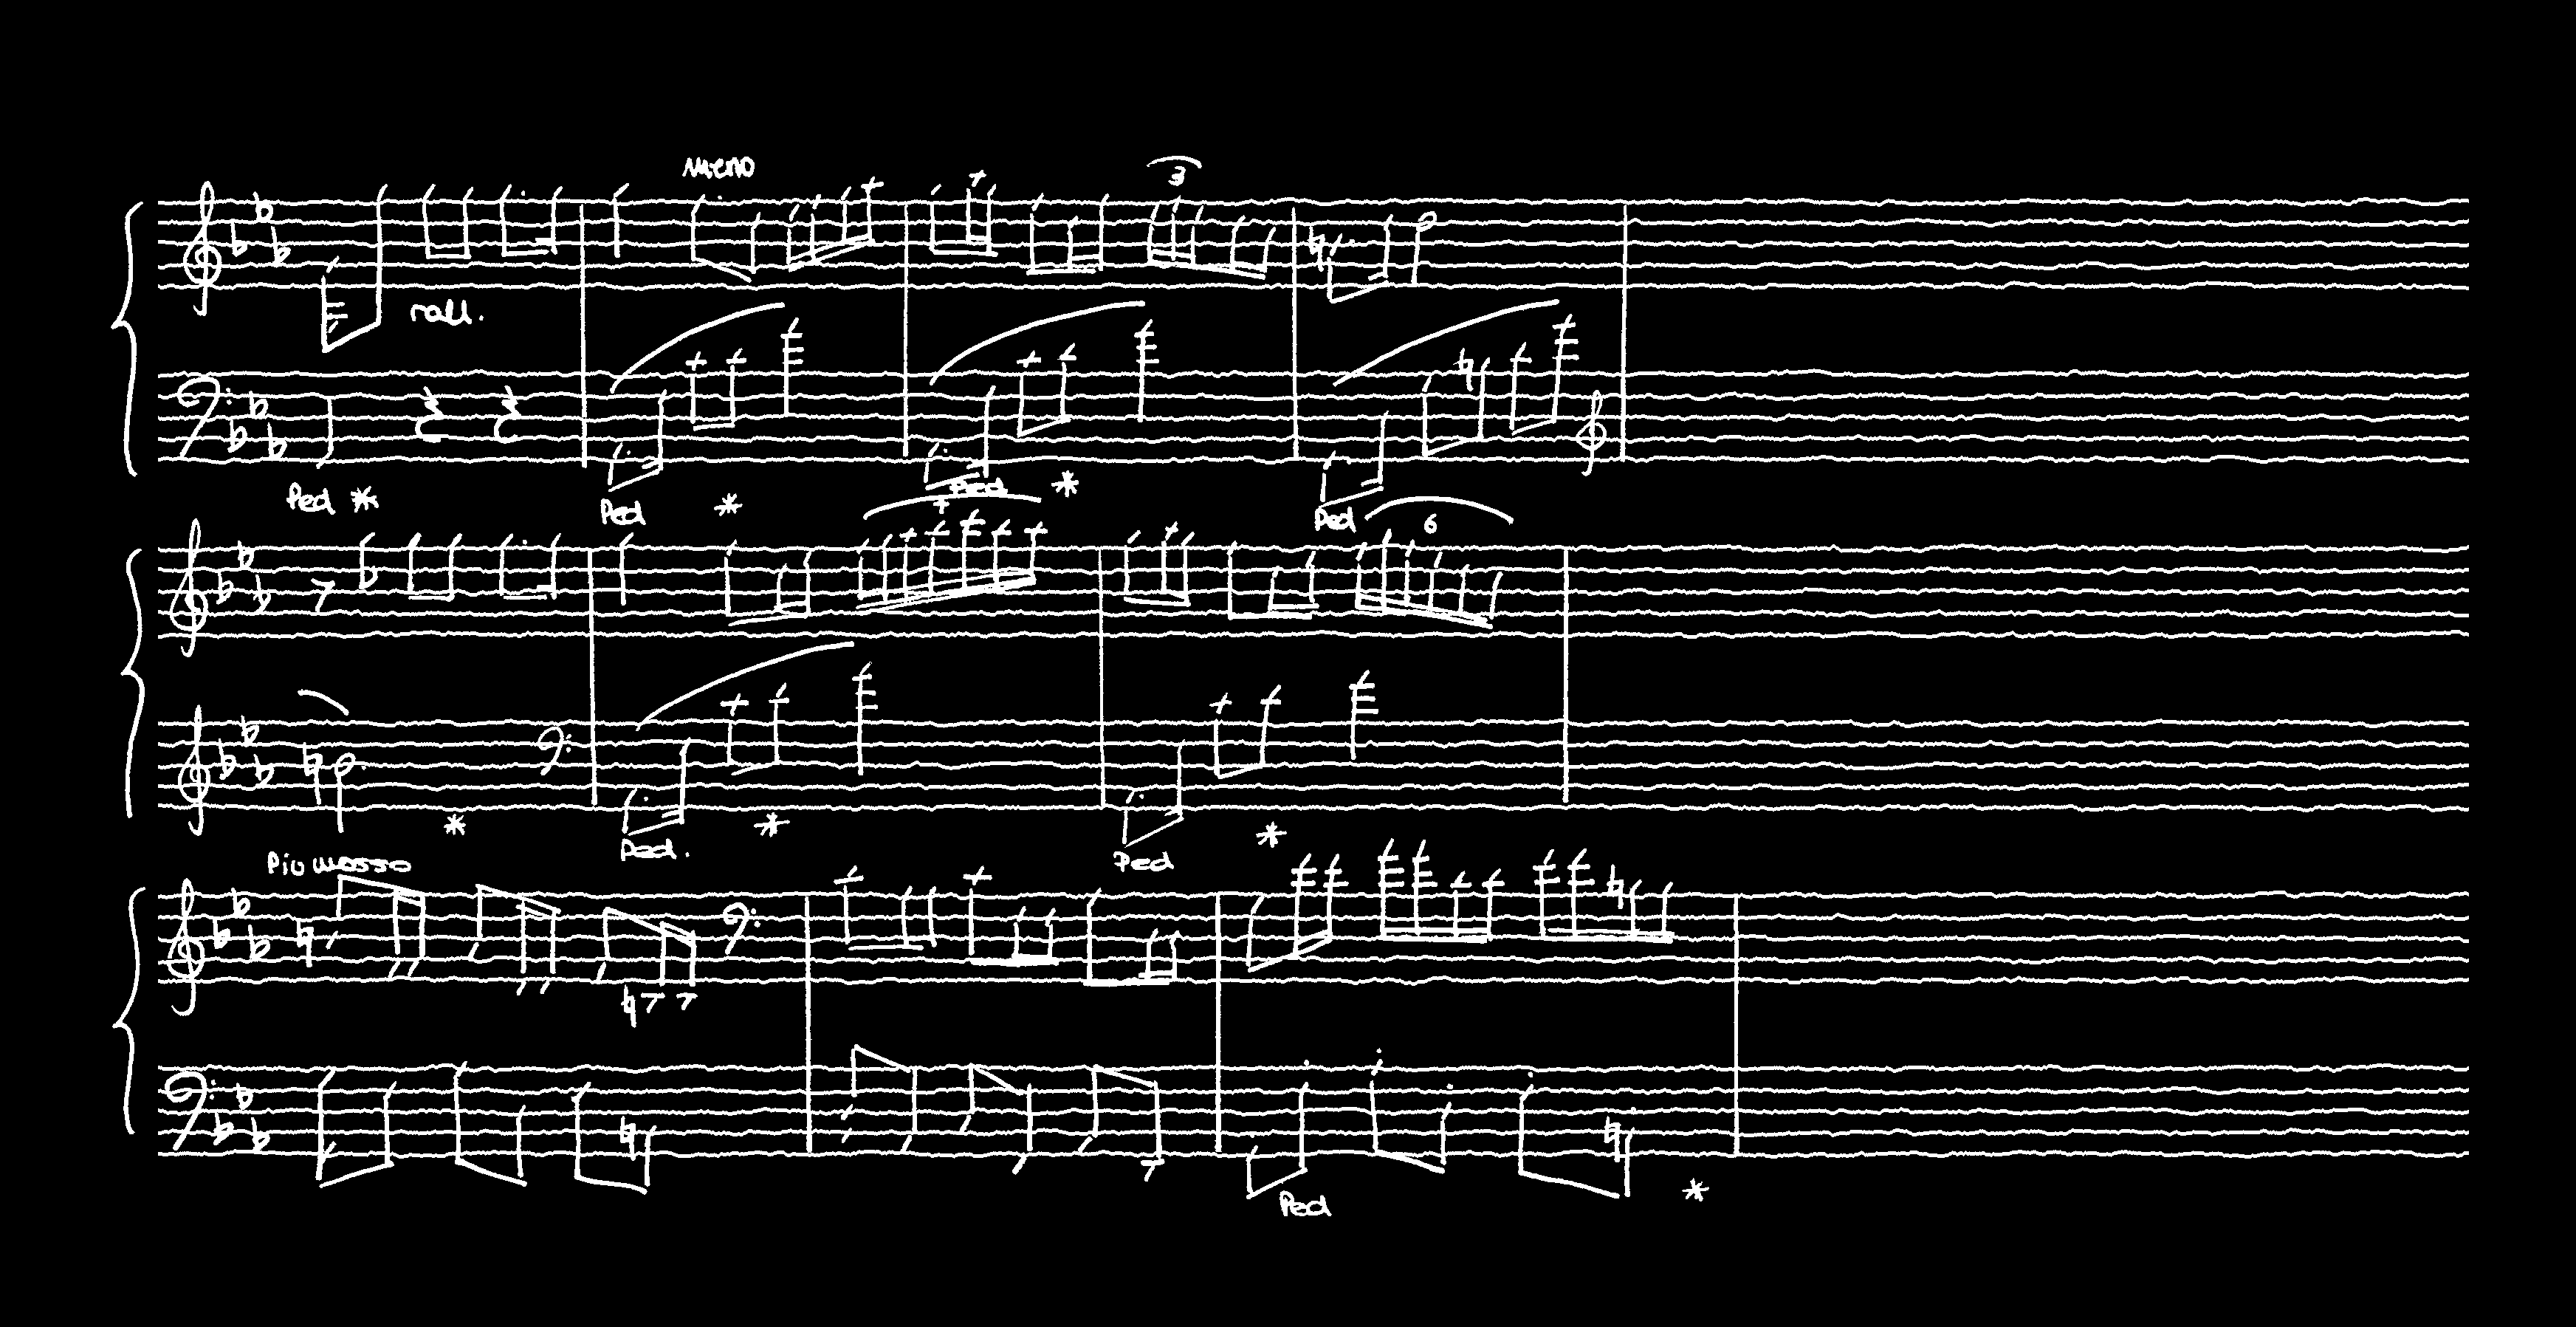 Meno
3
rall.
Ped * Ped * Ped * Ped
7 6
* Ped. * Ped *
Piu mosso
Ped *